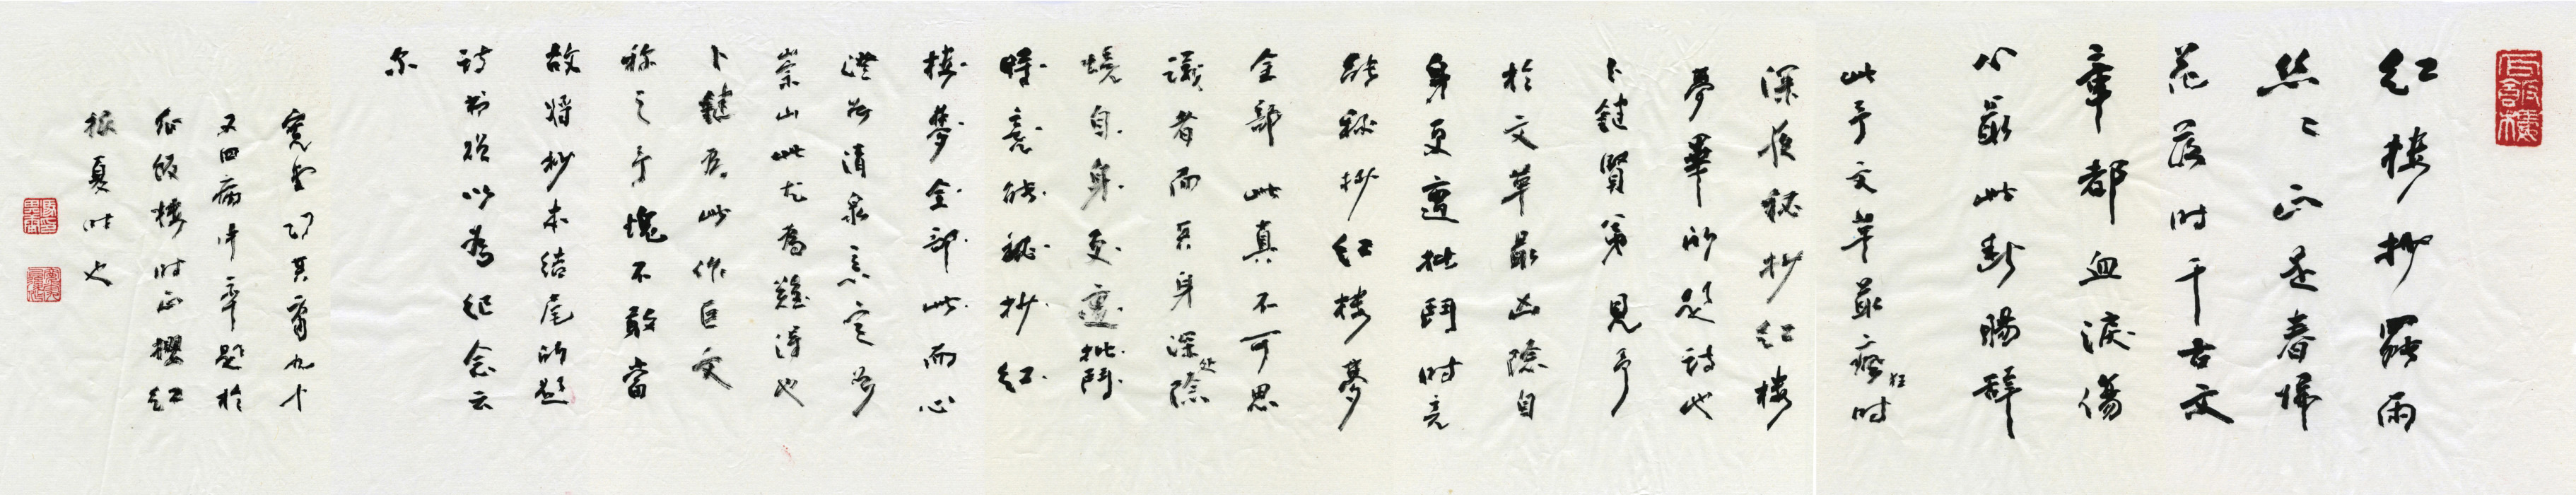 红楼抄罢雨
丝丝正是春归
花落时千古文
章都血泪伤
心最此断肠辞
此予文革最疯狂时
深夜秘抄红楼
梦毕所题诗也
卜键贤弟见予
于文革最凶险自
身更遭批斗时竟
能秘抄红楼梦
全部此真不可思
议者而其身深处险
境自身更遭批斗
时竟能秘抄红
楼梦全部此而心
澄如清泉意定如
崇山此尤为难得也
卜键为此作巨文
称之予愧不敢当
故将抄本结尾所题
诗书赠以为纪念云
尔
宽堂冯其庸九十
又四病中率题于
瓜饭楼时正樱红
夏时也